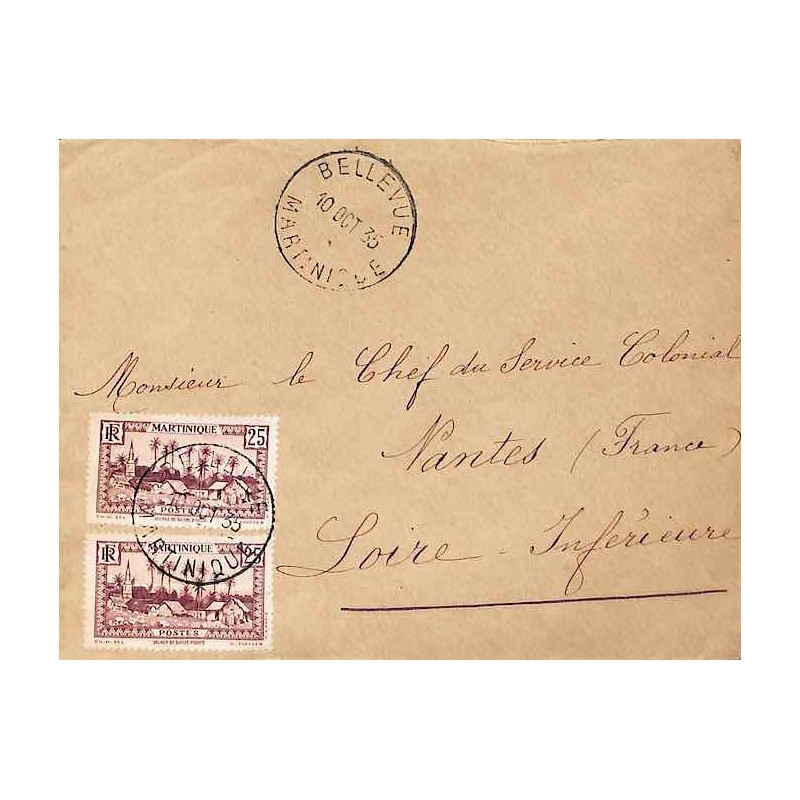 BELLEVUE
10 OCT 35
MARTINIQUE
Monsieur le Chef du Service Colonial
Nantes (France)
Loire - Inférieure
RF MARTINIQUE 25
POSTES
10 OCT 35
MARTINIQUE
RF MARTINIQUE 25
POSTES
VILLAGE DE BASSE-POINTE